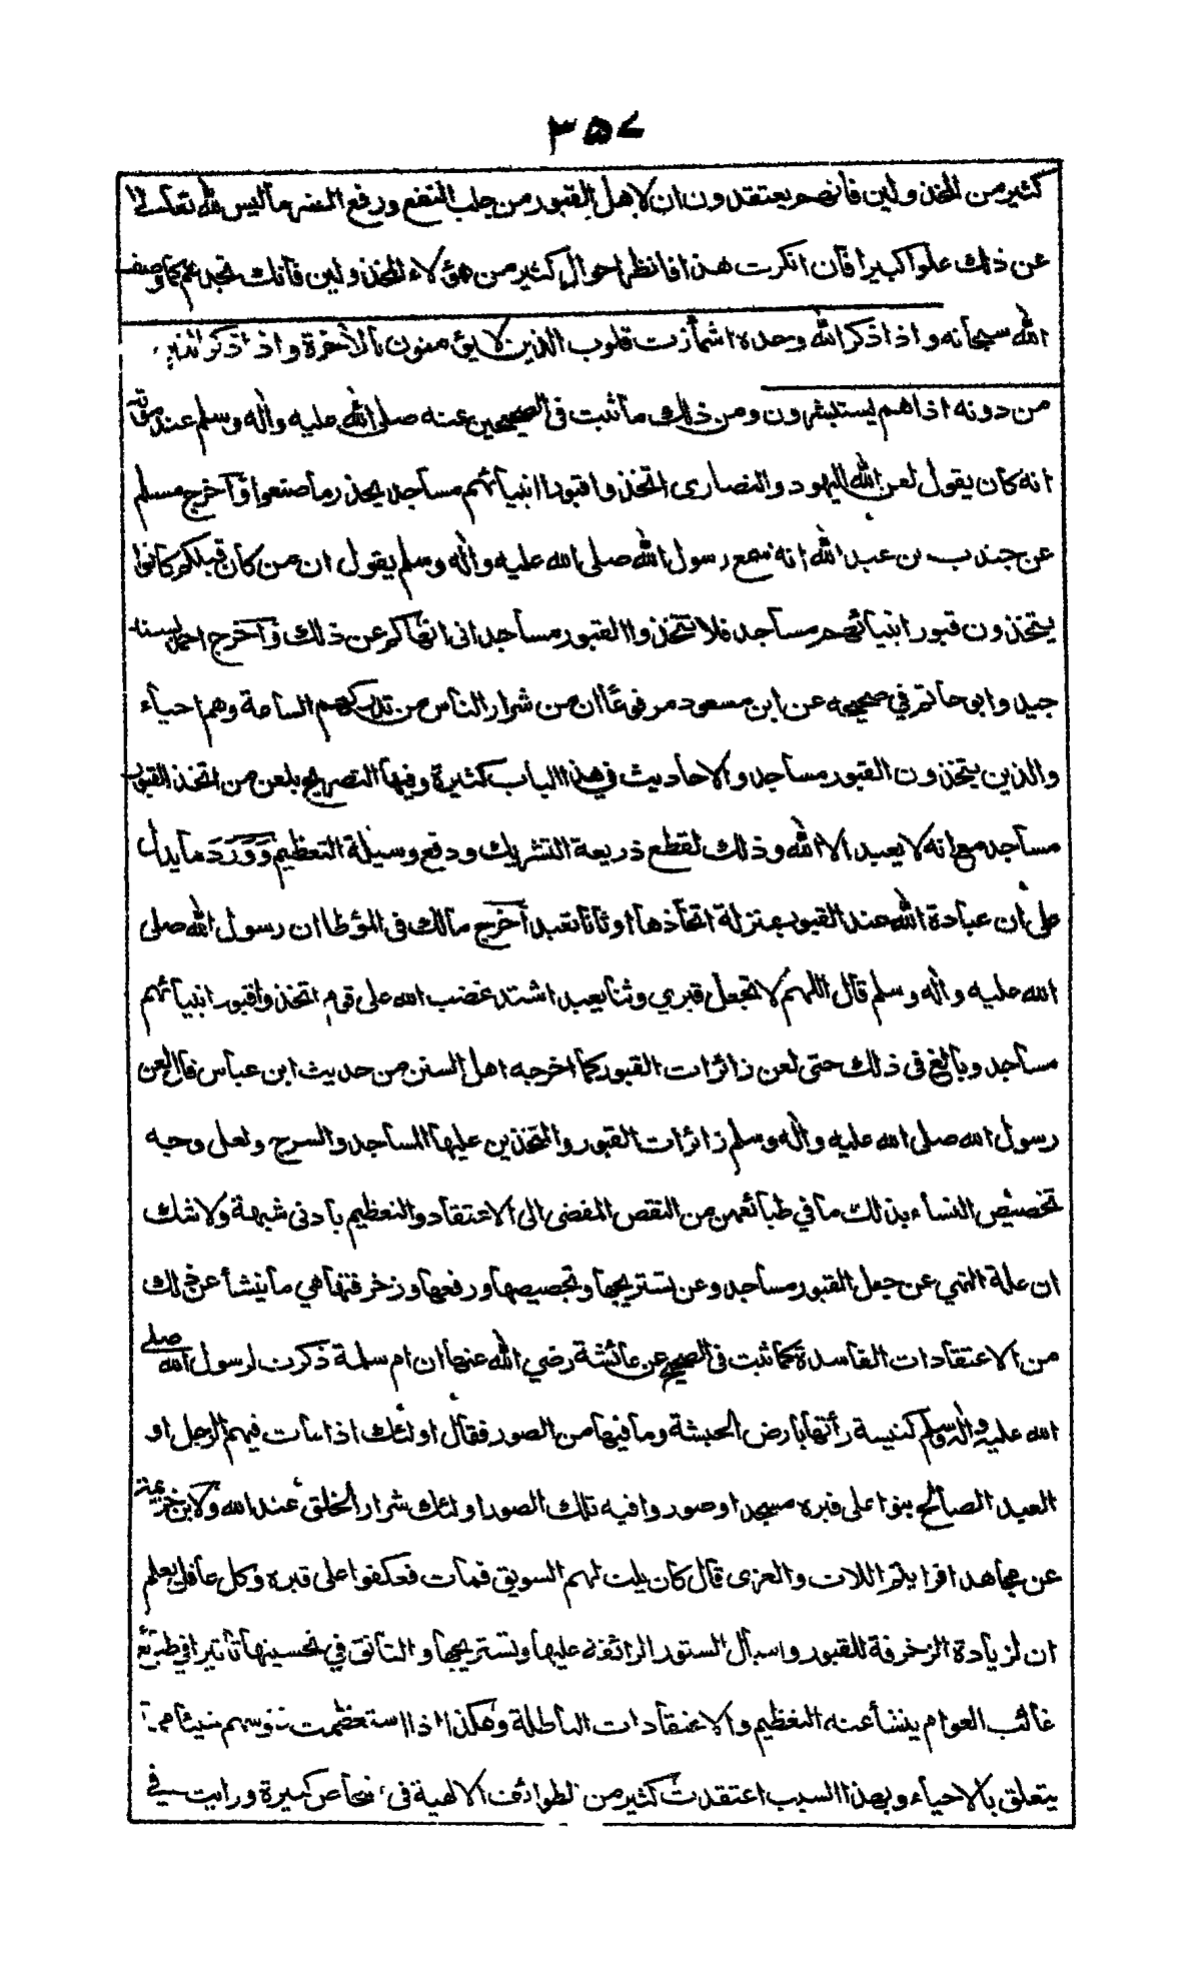 ٣٥٧
كثير من المخذولين فانهم يعتقدون ان لاهل القبور من جلب النفع ورفع الضر ما ليس لله تعالى
عن ذلك علوا كبيرا فان انكرت هذا فانظر احوال كثير من هؤلاء المخذولين فانك تجدهم كما وصف
الله سبحانه واذا ذكر الله وحده اشمأزت قلوب الذين لا يؤمنون بالآخرة واذا ذكر الذين
من دونه اذا هم يستبشرون ومن ذلك ما ثبت في الصحيحين عنه صلى الله عليه وآله وسلم عند موته
انه كان يقول لعن الله اليهود والنصارى اتخذوا قبور انبيائهم مساجد يحذر ما صنعوا وآخرج مسلم
عن جندب بن عبد الله انه سمع رسول الله صلى الله عليه وآله وسلم يقول ان من كان قبلكم كانوا
يتخذون قبور انبيائهم مساجد فلا تتخذوا القبور مساجد انى انهاكم عن ذلك وآخرج احمد بسند
جيد وابو حاتم في صحيحه عن ابن مسعود مرفوعا ان من شرار الناس من تدركهم الساعة وهم احياء
والذين يتخذون القبور مساجد والاحاديث في هذا الباب كثيرة وفيها التصريح بلعن من اتخذ القبور
مساجد مع انه لا يعبد الا الله وذلك لقطع ذريعة التشريك ودفع وسيلة التعظيم وَوَرَدَ ما يدل
على ان عبادة الله عند القبور بمنزلة اتخاذها اوثانا تعبد أخرج مالك في المؤطا ان رسول الله صلى
الله عليه وآله وسلم قال اللهم لا تجعل قبري وثنا يعبد اشتد غضب الله على قوم اتخذوا قبور انبيائهم
مساجد وبالغ في ذلك حتى لعن زائرات القبور كما اخرجه اهل السنن من حديث ابن عباس قال لعن
رسول الله صلى الله عليه وآله وسلم زائرات القبور والمتخذين عليها المساجد والسرج ولعل وجه
تخصيص النساء بذلك ما في طبائعهن من النقص المفضى الى الاعتقاد والتعظيم بادنى شبهة ولا شك
ان علة النهي عن جعل القبور مساجد وعن تسريجها وتجصيصها ورفعها وزخرفتها هي ما ينشأ عن ذلك
من الاعتقادات الفاسدة كما ثبت في الصحيح عن عائشة رضي الله عنها ان ام سلمة ذكرت لرسول الله صلى
الله عليه وآله وسلم كنيسة رأتها بارض الحبشة وما فيها من الصور فقال اولئك اذا مات فيهم الرجل او
العبد الصالح بنوا على قبره مسجدا وصوروا فيه تلك الصور اولئك شرار الخلق عند الله ولابن خزيمة
عن مجاهد افرايتم اللات والعزى قال كان يلت لهم السويق فمات فعكفوا على قبره وكل عاقل يعلم
ان لزيادة الزخرفة للقبور واسبال الستور الرائقة عليها وتسريجها والتانق في تحسينها تاثيرا في طبائع
غالب العوام ينشأ عنه التعظيم والاعتقادات الباطلة وهكذا اذا استعظمت نفوسهم شيئا مما
يتعلق بالاحياء وبهذا السبب اعتقدت كثير من الطوائف الالهية في اشخاص كبيرة ورايت في